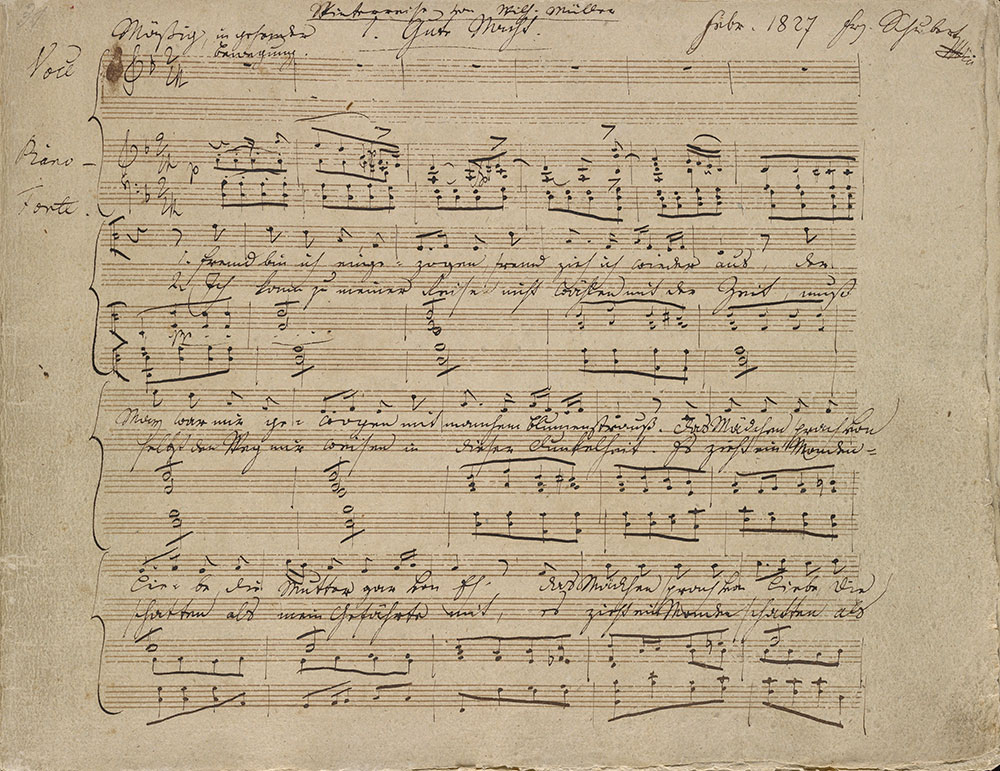 Winterreise von Wilh. Müller
Mäßig, in gehender Bewegung. 1. Gute Nacht. Febr. 1827 Frz. Schubert
Voce
Piano-
Forte.
p
1. Fremd bin ich einge- zogen, fremd zieh ich wieder aus, der
2. Ich kann zu meiner Reise nicht wählen mit der Zeit, muß
May war mir ge- wogen mit manchem Blumenstrauß. Das Mädchen sprach von
selbst den Weg mir weisen in dieser Dunkelheit. Es zieht ein Monden-
Lie-be, die Mutter gar von Eh, das Mädchen sprach von Liebe die
schatten als mein Gefährte mit, es zieht ein Mondenschatten als